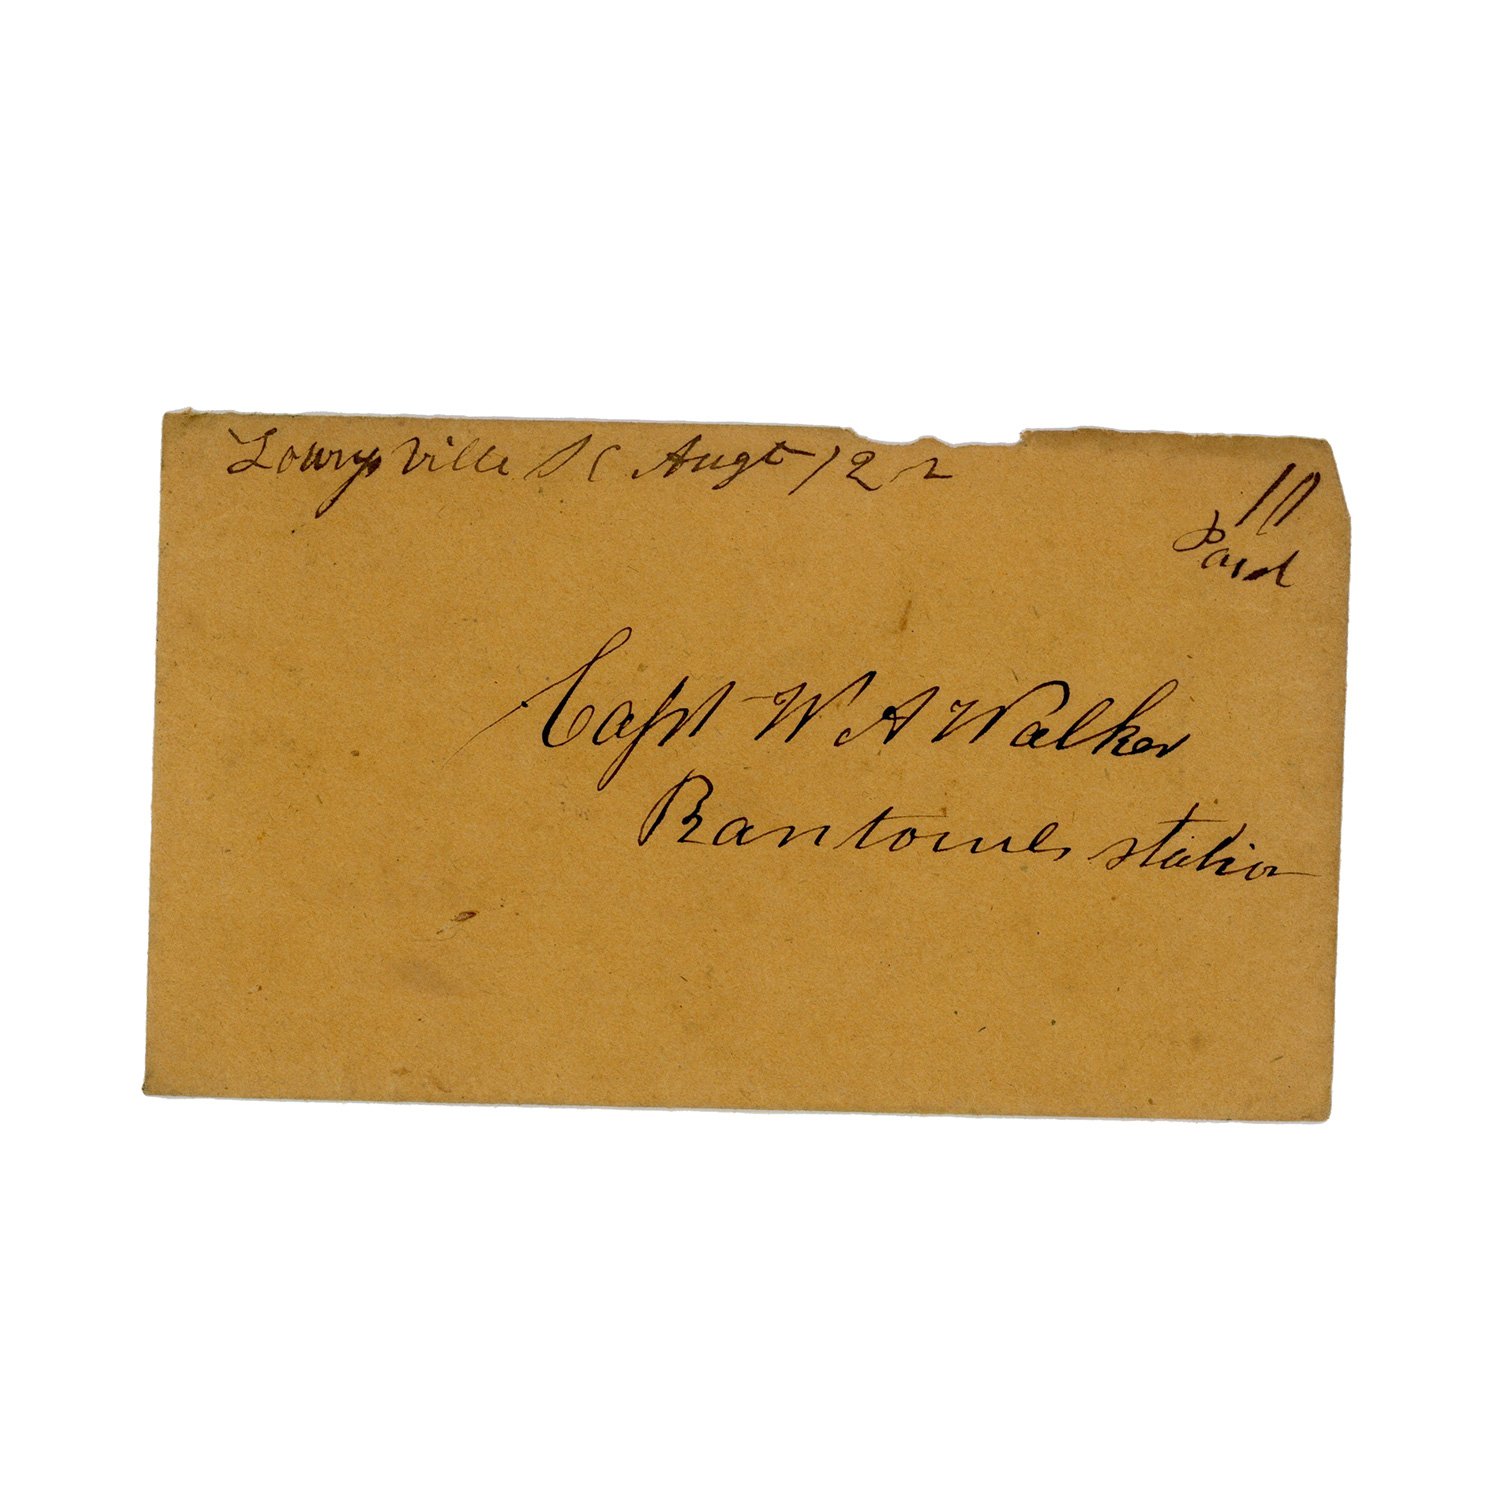 Lowrysville SC Augt 12
10
Paid
Capt W A Walker
Rantowles station